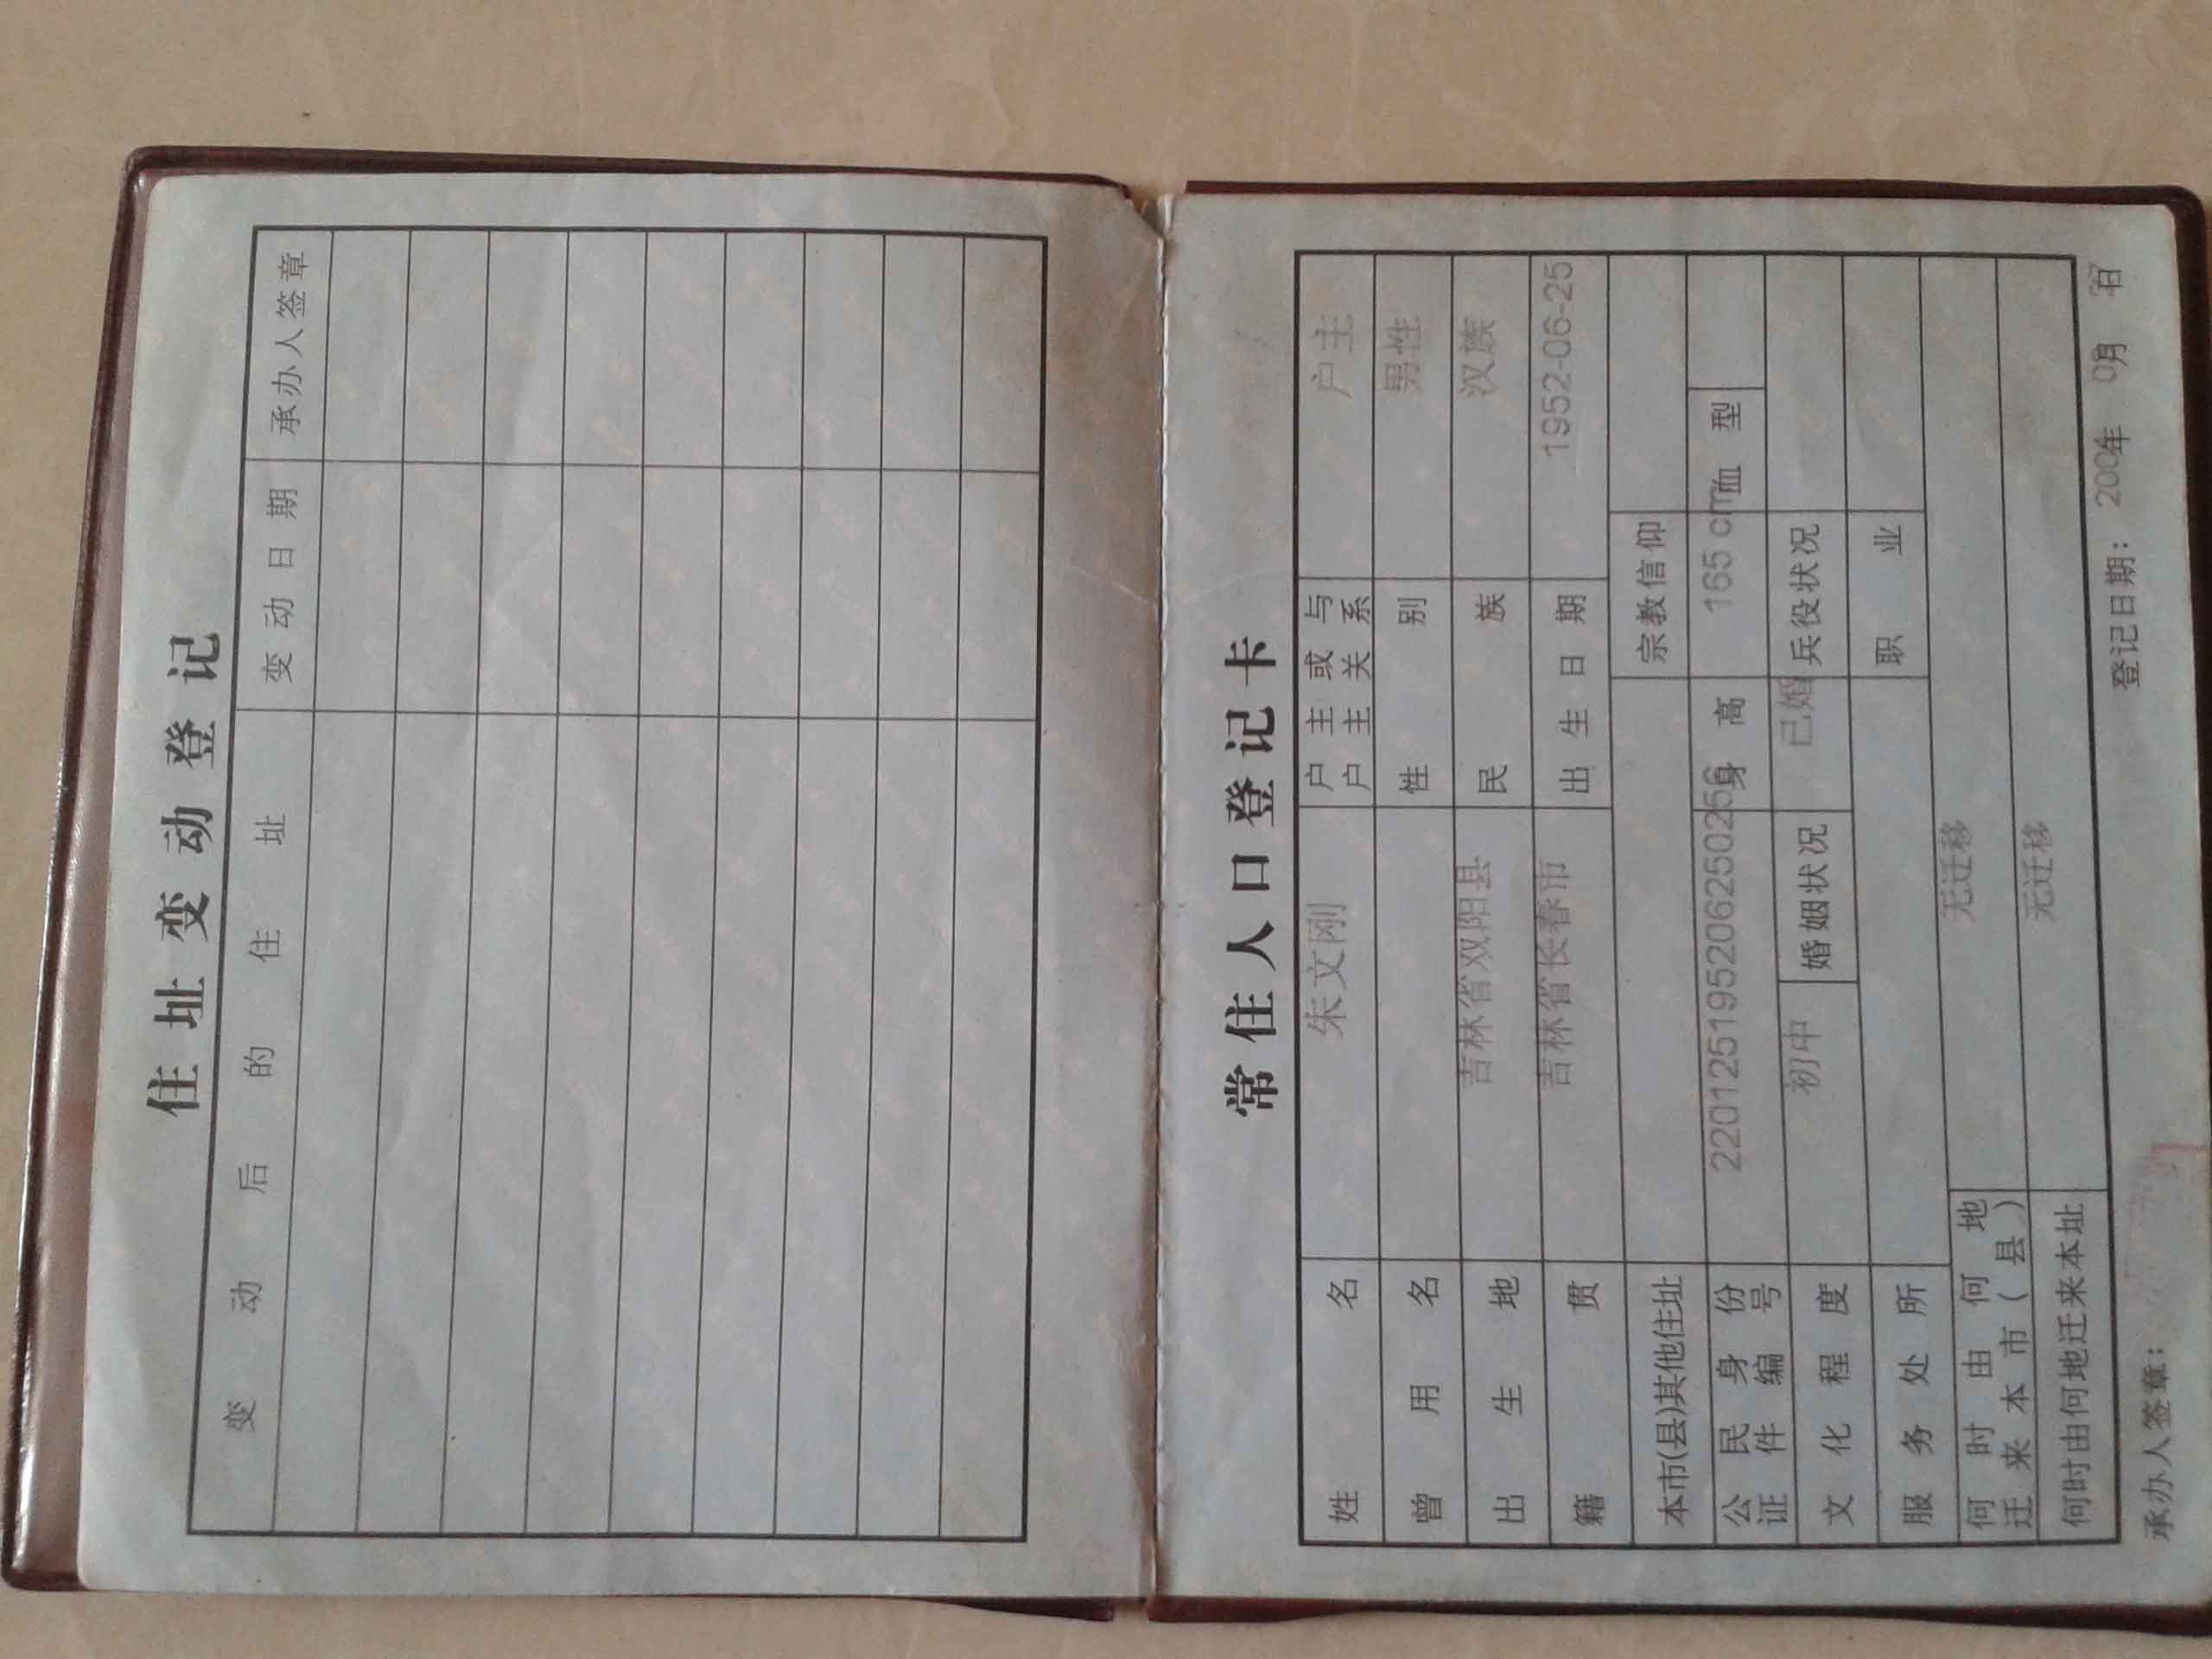 住址变动登记
变动后的住址 变动日期 承办人签章
常住人口登记卡
姓名 朱文刚 户主或与户主关系 户主
曾用名 性别 男性
出生地 吉林省双阳县 民族 汉族
籍贯 吉林省长春市 出生日期 1952-06-25
本市(县)其他住址 宗教信仰
公民身份证件编号 220125195206250256 身高 165 cm 血型
文化程度 初中 婚姻状况 已婚 兵役状况
服务处所 职业
何时由何地迁来本市(县) 无迁移
何时由何地迁来本址 无迁移
承办人签章: 登记日期: 年 月 日